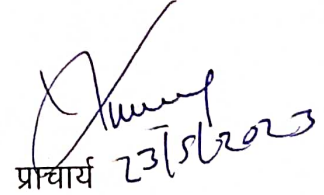 प्राचार्य 23/5/2023